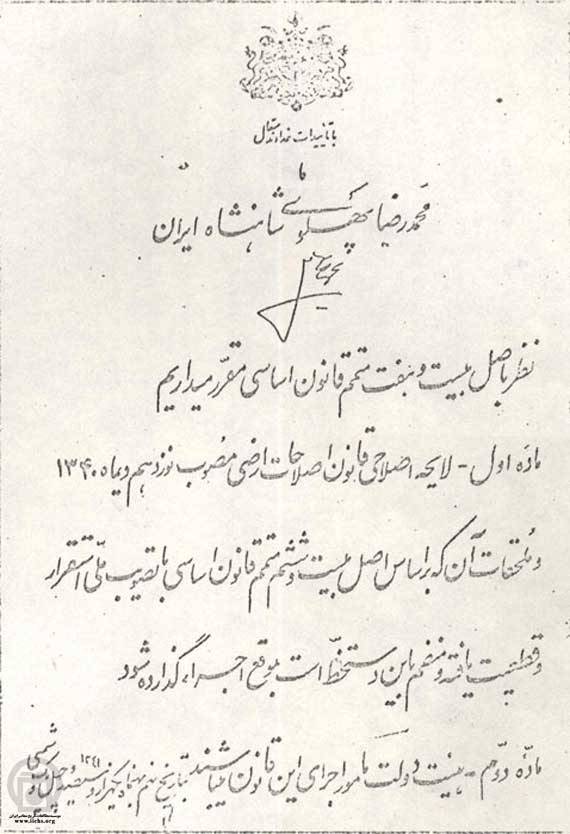 با تأییدات خداوند متعال
ما
محمدرضا پهلوی شاهنشاه ایران
نظر باصل بیست و هفت متمم قانون اساسی مقرر میداریم
ماده اول - لایحه اصلاحی قانون اصلاحات ارضی مصوب نوزدهم دیماه ۱۳۴۰
و ملحقات آن که براساس اصل بیست و ششم متمم قانون اساسی با تصویب ملی استقرار
و قطعیت یافته و منضم باین دستخط است بموقع اجراء گذارده شود
ماده دوم - هیئت دولت مأمور اجرای این قانون میباشند بتاریخ نهم بهمنماه یکهزار و سیصد و چهل و یک شمسی
۱۳۴۱
www.iichs.org